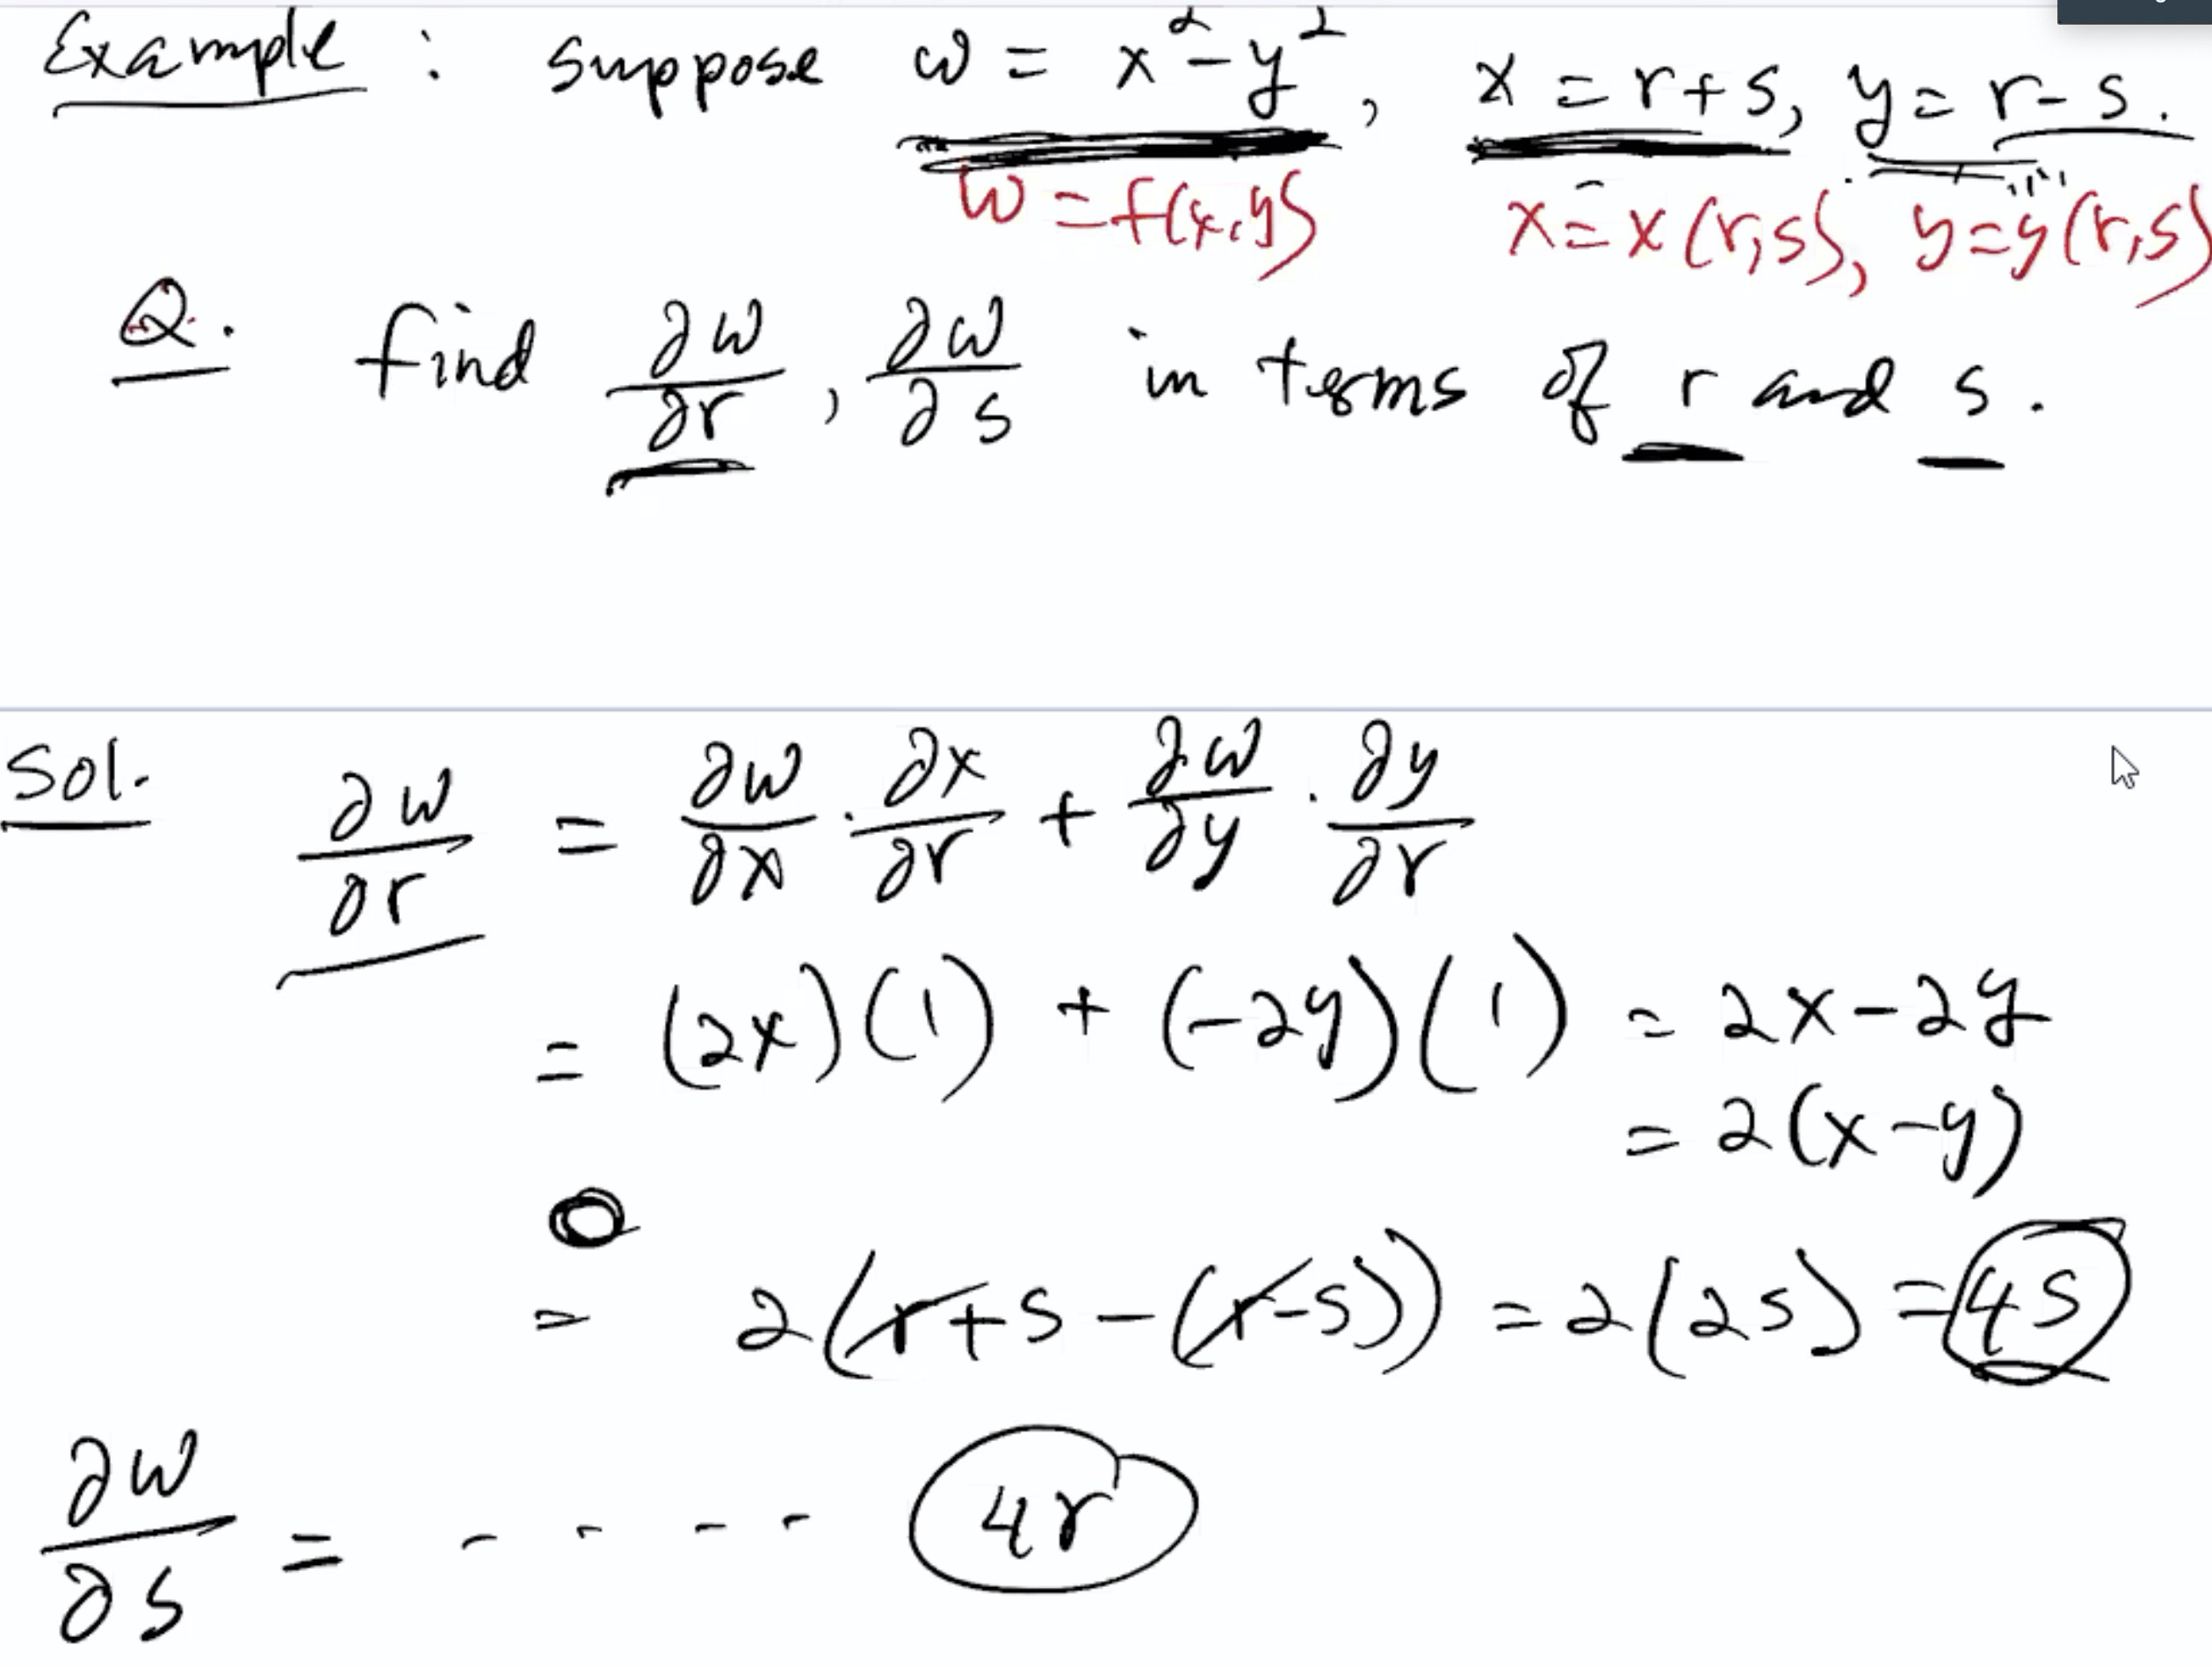 Example : suppose w = x² - y², x = r + s, y = r - s.
w = f(x,y) x = x(r,s), y = y(r,s)
Q. find ∂w/∂r, ∂w/∂s in terms of r and s.
Sol. ∂w/∂r = ∂w/∂x · ∂x/∂r + ∂w/∂y · ∂y/∂r
= (2x)(1) + (-2y)(1) = 2x - 2y
= 2(x - y)
= 2(r + s - (r - s)) = 2(2s) = 4s
∂w/∂s = - - - - 4r